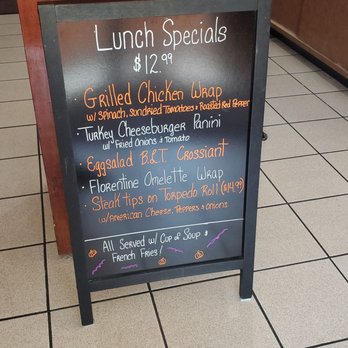 Lunch Specials
$12.99
· Grilled Chicken Wrap
w/ Spinach, Sundried Tomatoes & Roasted Red Pepper
· Turkey Cheeseburger Panini
w/ Fried Onions & Tomato
· Eggsalad B.L.T. Crossiant
· Florentine Omelette Wrap
· Steak tips on Torpedo Roll ($14.99)
w/ American Cheese, Peppers & Onions
All Served w/ Cup of Soup &
French Fries!